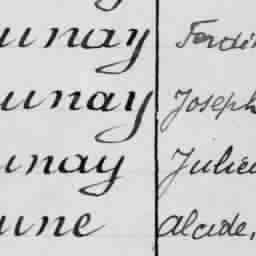 unay Ferdin
unay Joseph
unay Julien
une Alcide,